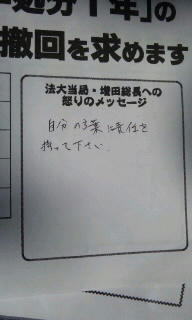 処分1年」の
撤回を求めます
法大当局・増田総長への
怒りのメッセージ
自分の言葉に責任を
持って下さい